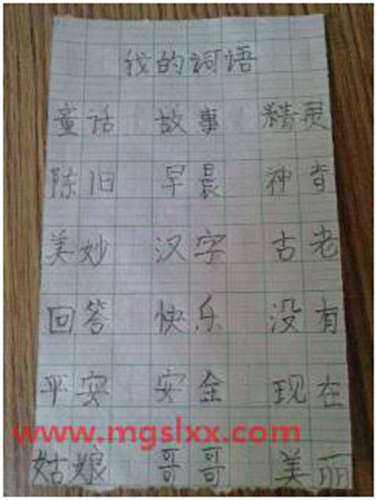 我的词语
童话 故事 精灵
陈旧 早晨 神奇
美妙 汉字 古老
回答 快乐 没有
平安 安全 现在
www.mgslxx.com
姑娘 哥哥 美丽